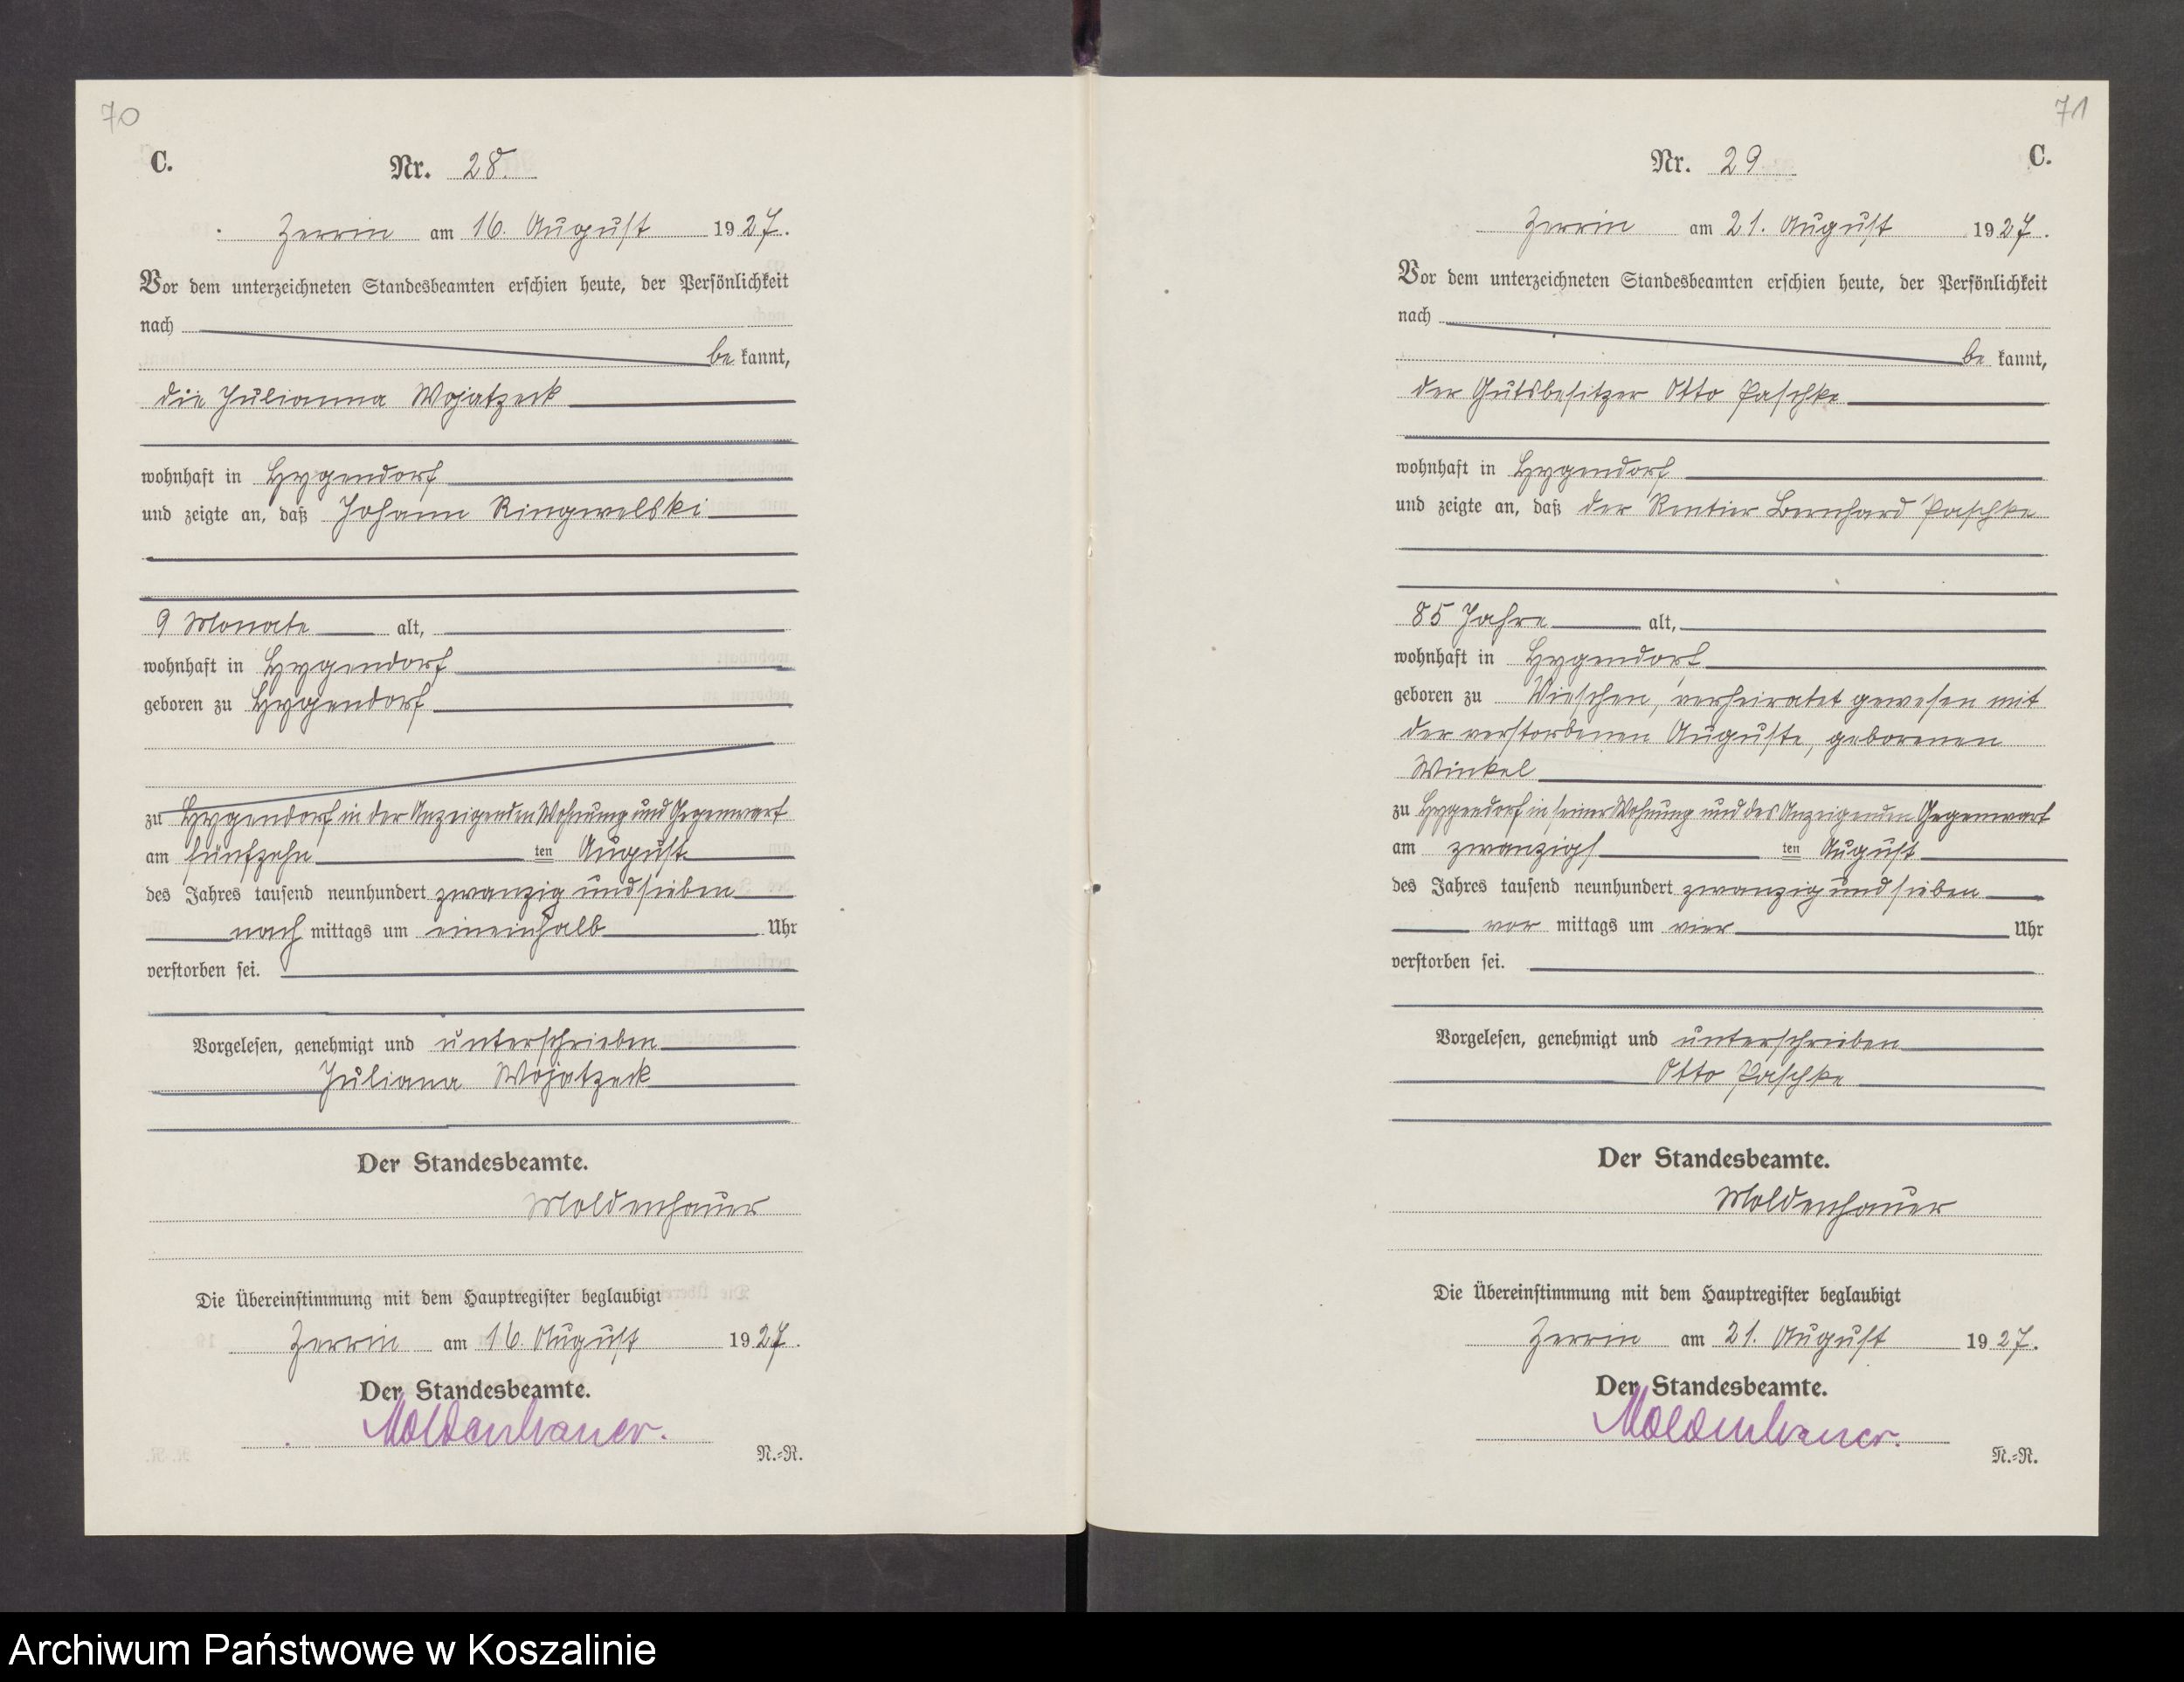 70
C.
Nr. 28.
Zerrin am 16. August 1927.
Vor dem unterzeichneten Standesbeamten erschien heute, der Persönlichkeit
nach
be kannt,
die Julianna Wojatzeck
wohnhaft in Hygendorf
und zeigte an, daß Johann Ringwelski
9 Monate alt,
wohnhaft in Hygendorf
geboren zu Hygendorf
zu Hygendorf in der Anzeigenden Wohnung und Gegenwart
am fünfzehn ten August
des Jahres tausend neunhundert zwanzig und sieben
nach mittags um eineinhalb Uhr
verstorben sei.
Vorgelesen, genehmigt und unterschrieben
Juliana Wojatzeck
Der Standesbeamte.
Moldenhauer
Die Übereinstimmung mit dem Hauptregister beglaubigt
Zerrin am 16. August 1927.
Der Standesbeamte.
Moldenhauer.
N.-R.
71
Nr. 29 C.
Zerrin am 21. August 1927.
Vor dem unterzeichneten Standesbeamten erschien heute, der Persönlichkeit
nach
be kannt,
der Gutsbesitzer Otto Paschke
wohnhaft in Hygendorf
und zeigte an, daß der Rentier Bernhard Paschke
85 Jahre alt,
wohnhaft in Hygendorf
geboren zu Wieschen, verheiratet gewesen mit
der verstorbenen Auguste, geborenen
Winkel
zu Hygendorf in seiner Wohnung und des Anzeigenden Gegenwart
am zwanzigs ten August
des Jahres tausend neunhundert zwanzig und sieben
vor mittags um vier Uhr
verstorben sei.
Vorgelesen, genehmigt und unterschrieben
Otto Paschke
Der Standesbeamte.
Moldenhauer
Die Übereinstimmung mit dem Hauptregister beglaubigt
Zerrin am 21. August 1927.
Der Standesbeamte.
Moldenhauer.
N.-R.
Archiwum Państwowe w Koszalinie